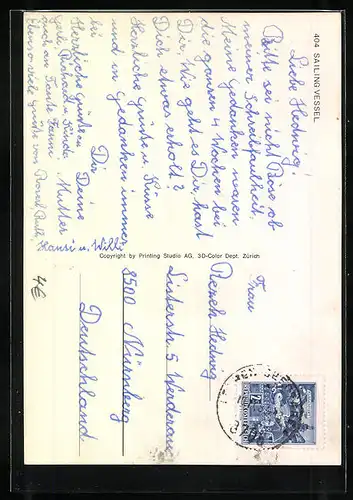 404 SAILINGVESSEL
Liebe Hedwig!
Bitte sei nicht Böse ob
meiner Schreibfaulheit.
Meine Gedanken waren
die ganzen 4 Wochen bei
Dir. Wie geht es Dir, hast
Dich etwas erholt?
Herzliche Grüße u. Küsse
und in Gedanken immer
bei Dir
Deine
Mutter
Herzliche Grüße
Richard u. Linda
auch an Tante Fanni
Ebenso viele Grüße von
Hansi u. Willi
Copyright by Printing Studio AG, 3D-Color Dept. Zürich
Frau
Hedwig
5
8500 Nürnberg
Deutschland
4€